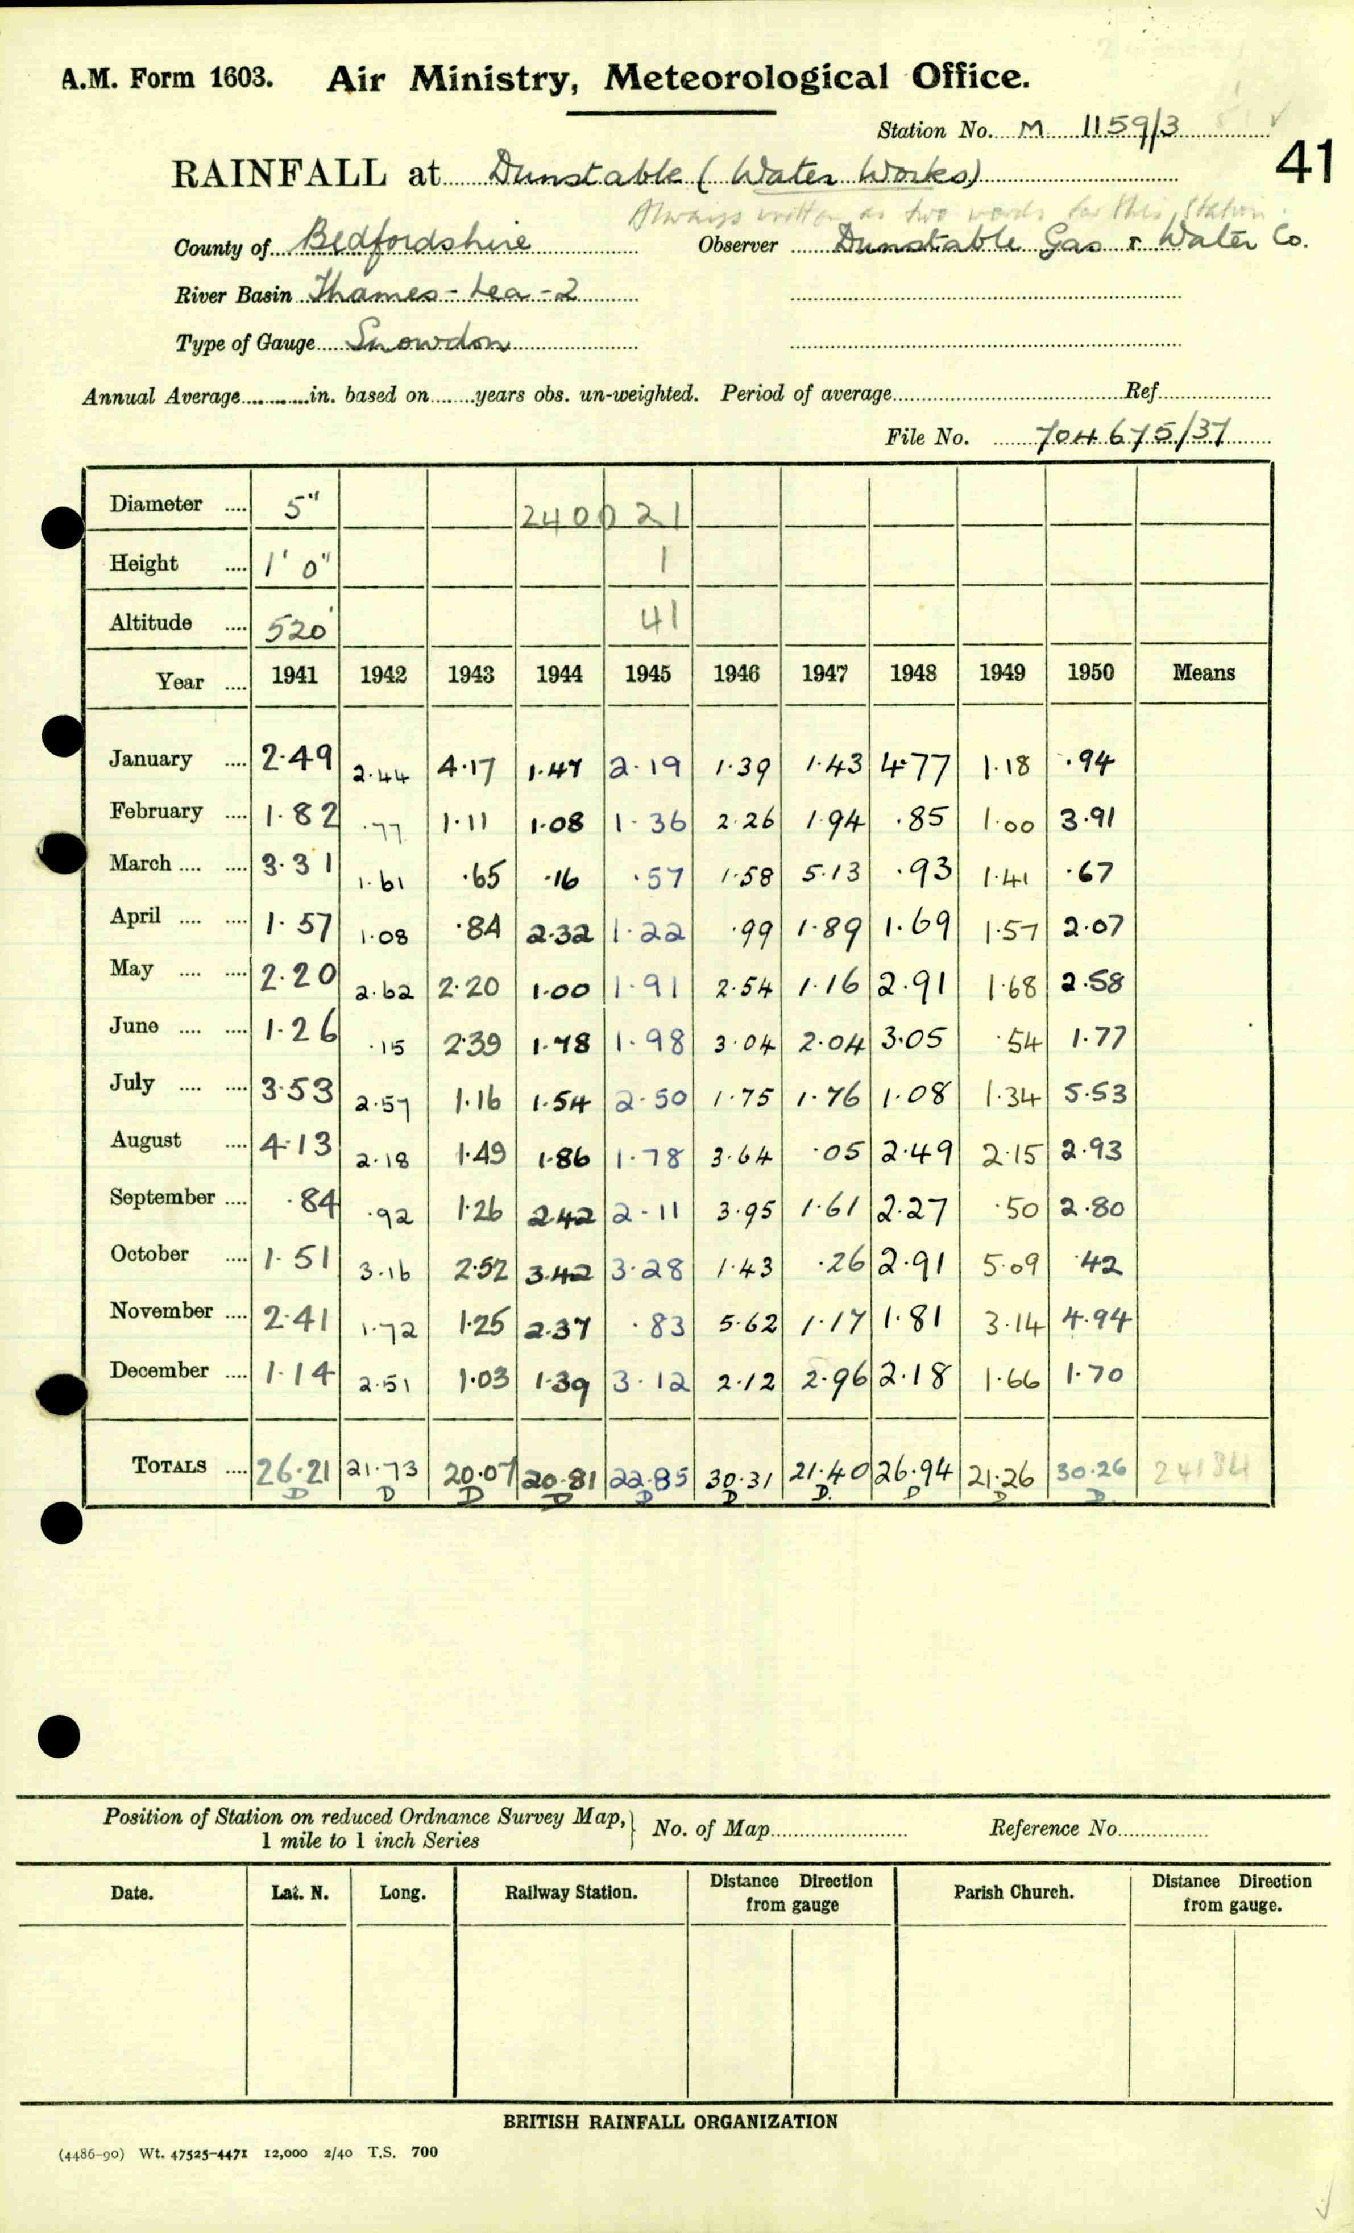 A.M. Form 1603. Air Ministry, Meteorological Office.
Station No. M 1159/3
41
RAINFALL at Dunstable (Water Works)
Always written as two words for this station.
County of Bedfordshire Observer Dunstable Gas & Water Co.
River Basin Thames-Lea-2
Type of Gauge Snowdon
Annual Average in. based on years obs. un-weighted. Period of average Ref
File No. 704675/37
Diameter .... 5" 2400 21
Height .... 1' 0" 1
Altitude .... 520' 41
Year .... 1941 1942 1943 1944 1945 1946 1947 1948 1949 1950 Means
January .... 2.49 2.44 4.17 1.47 2.19 1.39 1.43 4.77 1.18 .94
February .... 1.82 .77 1.11 1.08 1.36 2.26 1.94 .85 1.00 3.91
March .... .... 3.31 1.61 .65 .16 .57 1.58 5.13 .93 1.41 .67
April .... .... 1.57 1.08 .84 2.32 1.22 .99 1.89 1.69 1.57 2.07
May .... .... 2.20 2.62 2.20 1.00 1.91 2.54 1.16 2.91 1.68 2.58
June .... .... 1.26 .15 2.39 1.78 1.98 3.04 2.04 3.05 .54 1.77
July .... .... 3.53 2.57 1.16 1.54 2.50 1.75 1.76 1.08 1.34 5.53
August .... 4.13 2.18 1.49 1.86 1.78 3.64 .05 2.49 2.15 2.93
September .... .84 .92 1.26 2.42 2.11 3.95 1.61 2.27 .50 2.80
October .... 1.51 3.16 2.52 3.42 3.28 1.43 .26 2.91 5.09 .42
November .... 2.41 1.72 1.25 2.37 .83 5.62 1.17 1.81 3.14 4.94
December .... 1.14 2.51 1.03 1.39 3.12 2.12 2.96 2.18 1.66 1.70
TOTALS .... 26.21 21.73 20.07 20.81 22.85 30.31 21.40 26.94 21.26 30.26 24184
D D D D D D D. D D D.
Position of Station on reduced Ordnance Survey Map, 1 mile to 1 inch Series No. of Map Reference No.
Date. Lat. N. Long. Railway Station. Distance Direction from gauge Parish Church. Distance Direction from gauge.
BRITISH RAINFALL ORGANIZATION
(4486-90) Wt. 47525-4471 12,000 2/40 T.S. 700